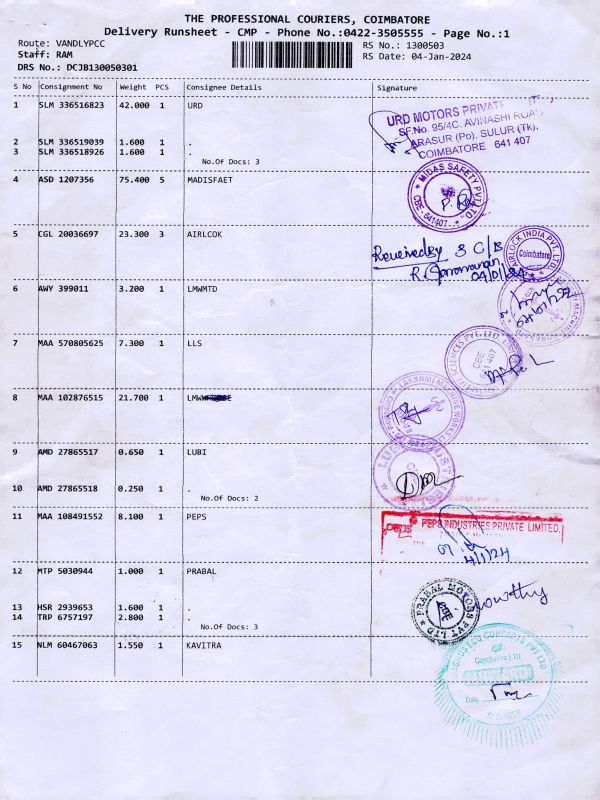 THE PROFESSIONAL COURIERS, COIMBATORE
Delivery Runsheet - CMP - Phone No.:0422-3505555 - Page No.:1
Route: VANDLYPCC
RS No.: 1300503
Staff: RAM
RS Date: 04-Jan-2024
DRS No.: DCJB130050301
S No Consignment No Weight PCS Consignee Details Signature
1 SLM 336516823 42.000 1 URD
URD MOTORS PRIVATE
SF.No. 95/4C, AVINASHI ROAD
ARASUR (Po), SULUR (Tk),
COIMBATORE 641 407
2 SLM 336519039 1.600 1 .
3 SLM 336518926 1.600 1 .
No.Of Docs: 3
4 ASD 1207356 75.400 5 MADISFAET
MIDAS SAFETY PVT. LTD.
CBE - 641407
5 CGL 20036697 23.300 3 AIRLCOK
Received by 3 C/B
04/01/24
AIRLOCK INDIA PVT. LTD.
Coimbatore
6 AWY 399011 3.200 1 LMWMTD
7 MAA 570805625 7.300 1 LLS
SCIENCES PVT. LTD
CBE
641 407
8 MAA 102876515 21.700 1 LMW
LAKSHMI MACHINE WORKS
9 AMD 27865517 0.650 1 LUBI
10 AMD 27865518 0.250 1 .
No.Of Docs: 2
11 MAA 108491552 8.100 1 PEPS
peps PEPS INDUSTRIES PRIVATE LIMITED,
4/1/24
12 MTP 5030944 1.000 1 PRABAL
PRABAL MOTORS PVT LTD
CBE
13 HSR 2939653 1.600 1 .
14 TRP 6757197 2.800 1 .
No.Of Docs: 3
15 NLM 60467063 1.550 1 KAVITRA
ECO CONCEPTS PVT LTD
Date